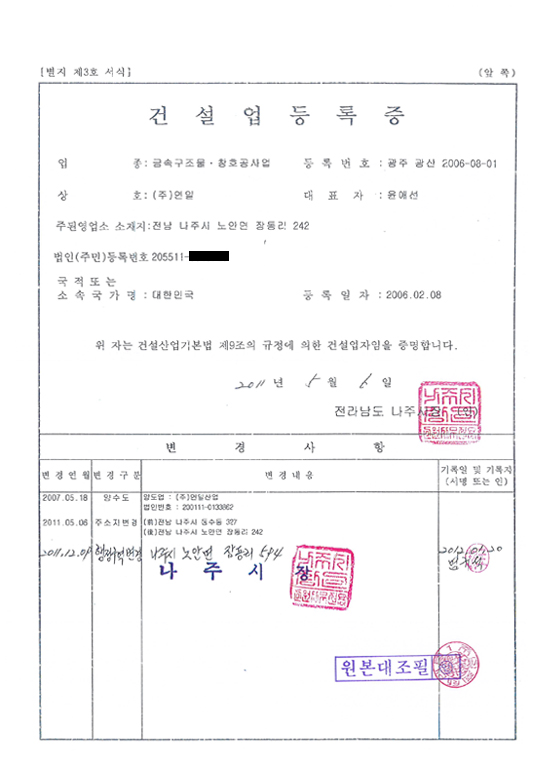 [별지 제3호 서식] (앞 쪽)
건 설 업 등 록 증
업 종: 금속구조물·창호공사업 등 록 번 호 : 광주 광산 2006-08-01
상 호: (주)연일 대 표 자 : 윤애선
주된영업소 소재지:전남 나주시 노안면 장동리 242
법인(주민)등록번호 205511-
국 적 또 는
소 속 국 가 명 : 대한민국 등 록 일 자 : 2006.02.08
위 자는 건설산업기본법 제9조의 규정에 의한 건설업자임을 증명합니다.
2011 년 5 월 6 일
전라남도 나주시장 (인)
변 경 사 항
변경연월 변경구분 변 경 내 용 기록일 및 기록자
(서명 또는 인)
2007.05.18 양수도 양도업 : (주)연일산업
법인번호 : 200111-0133862
2011.05.06 주소지변경 (前)전남 나주시 동수동 327
(後)전남 나주시 노안면 장동리 242
2011.12.09 나주시 노안면 장동리 594 20
나 주 시 장
원본대조필